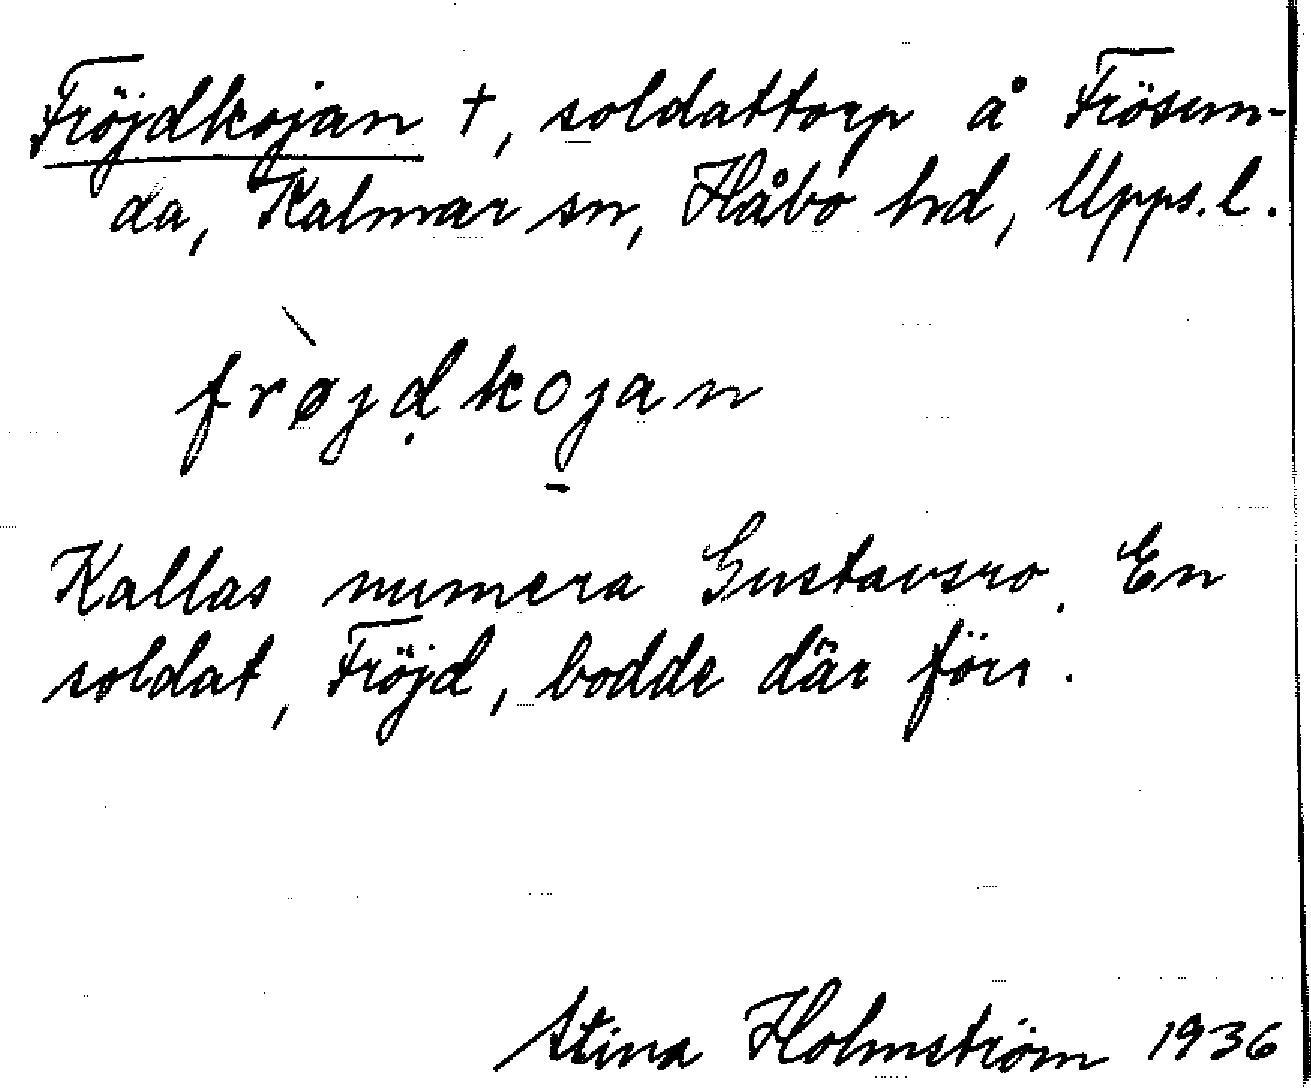 Fröjdkojan †, soldattorp å Frösun-
da, Kalmar sn, Håbo hd, Upps. l.
frø̀jḍko̱jan
Kallas numera Gustavsro. En
soldat, Fröjd, bodde där förr.
Stina Holmström 1936